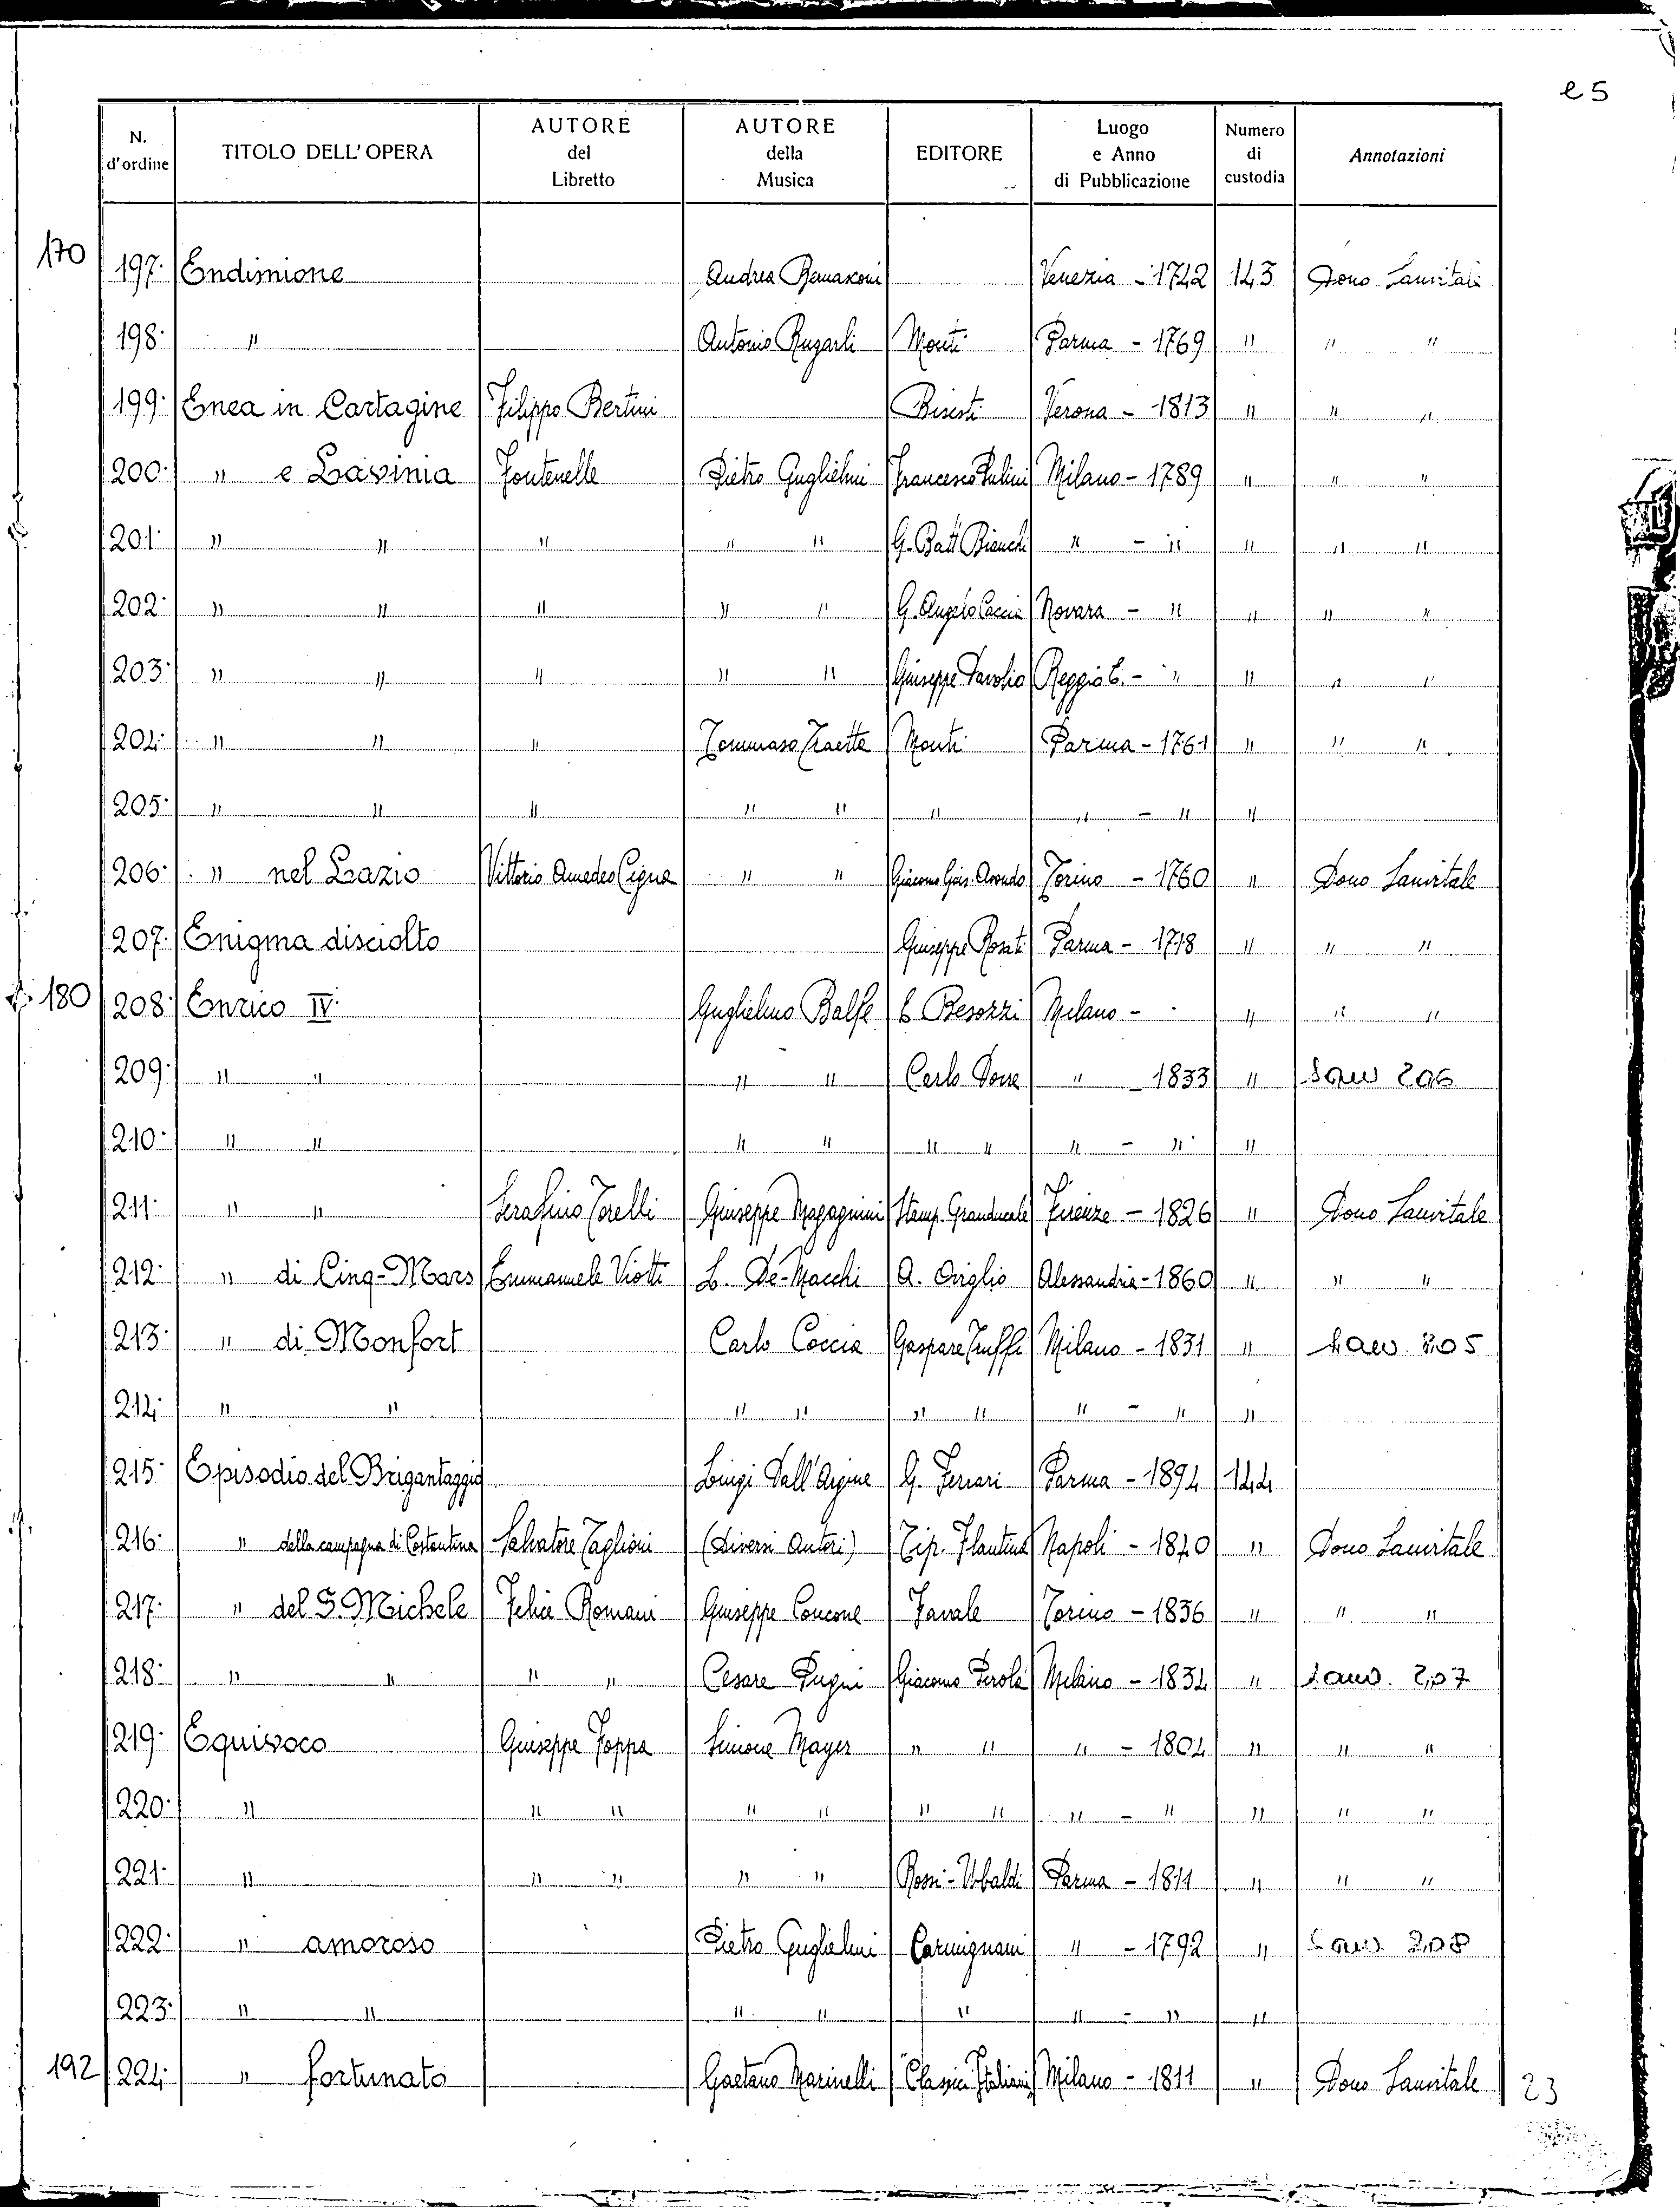 e5
N. d'ordine | TITOLO DELL'OPERA | AUTORE del Libretto | AUTORE della Musica | EDITORE | Luogo e Anno di Pubblicazione | Numero di custodia | Annotazioni
170
197. Endimione | | Andrea Bernasconi | | Venezia - 1742 | 143 | Dono Sanvitale
198. " | | Antonio Rugarli | Monti | Parma - 1769 | " | " "
199. Enea in Cartagine | Filippo Bertini | | Bisesti | Verona - 1813 | " | " "
200. " e Lavinia | Fontenelle | Pietro Guglielmi | Francesco Pulini | Milano - 1789 | " | " "
201. " " | " | " " | G. Batt Bianchi | " - " | " | " "
202. " " | " | " " | G. Angelo Caccia | Novara - " | " | " "
203. " " | " | " " | Giuseppe Davolio | Reggio E. - " | " | " "
204. " " | " | Tommaso Traetta | Monti | Parma - 1761 | " | " "
205. " " | " | " " | " | " - " | " |
206. " nel Lazio | Vittorio Amedeo Cigna | " " | Giacomo Gius. Avondo | Torino - 1760 | " | Dono Sanvitale
207. Enigma disciolto | | | Giuseppe Rosati | Parma - 1718 | " | " "
180
208. Enrico IV. | | Guglielmo Balfe | C. Besozzi | Milano - | " | " "
209. " " | | " " | Carlo Dova | " - 1833 | " | Sanv 206
210. " " | | " " | " " | " - " | " |
211. " " | Serafino Torelli | Giuseppe Magagnini | Stamp. Granducale | Firenze - 1826 | " | Dono Sanvitale
212. " di Cinq-Mars | Emmanuele Viotti | L. De-Macchi | A. Oviglio | Alessandria - 1860 | " | " "
213. " di Monfort | | Carlo Coccia | Gaspare Truffi | Milano - 1831 | " | Sanv. 205
214. " " | | " " | " " | " - " | " |
215. Episodio del Brigantaggio | | Luigi Dall'Argine | G. Ferrari | Parma - 1894 | 144 |
216. " della campagna di Costantina | Salvatore Taglioni | (Diversi Autori) | Tip. Flautina | Napoli - 1840 | " | Dono Sanvitale
217. " del S. Michele | Felice Romani | Giuseppe Concone | Favale | Torino - 1836 | " | " "
218. " " | " " | Cesare Pugni | Giacomo Pirola | Milano - 1834 | " | Sanv. 207
219. Equivoco | Giuseppe Foppa | Simone Mayer | " " | " - 1804 | " | " "
220. " | " " | " " | " " | " - " | " | " "
221. " | " " | " " | Rossi-Ubaldi | Parma - 1811 | " | " "
222. " amoroso | | Pietro Guglielmi | Carmignani | " - 1792 | " | Sanv. 208
223. " " | | " " | " | " - " | " |
192
224. " fortunato | | Gaetano Marinelli | "Classici Italiani | Milano - 1811 | " | Dono Sanvitale
23